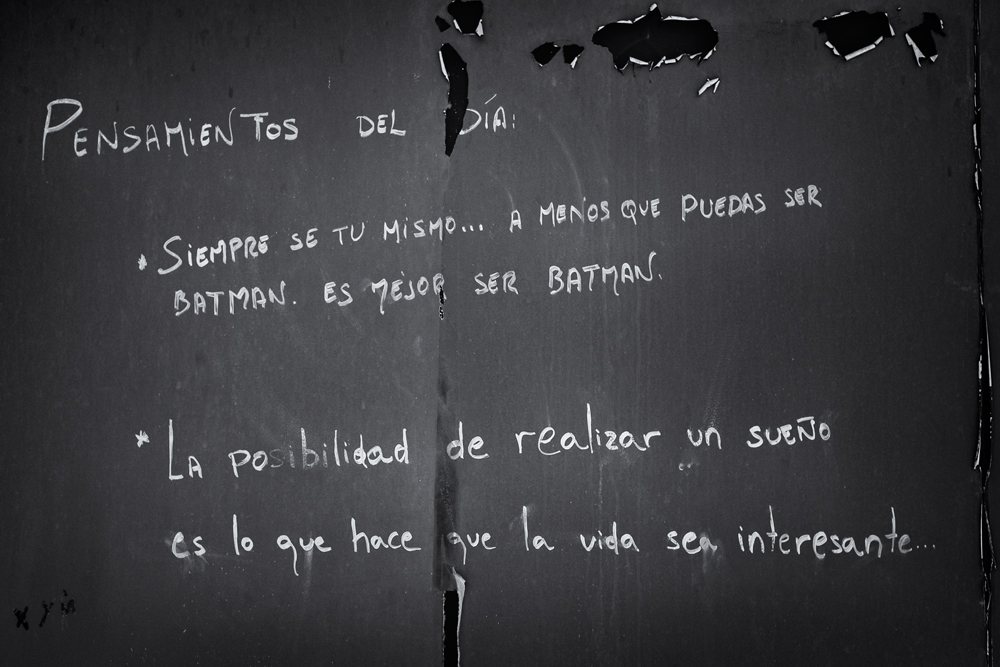 PENSAMiENTOS DEL DÍA:
* SiEMPRE SE TU MiSMO... A MENOS QUE PUEDAS SER
BATMAN. ES MEJOR SER BATMAN.
* LA posibilidad de realizar un SUEÑO
es lo que hace que la vida sea interesante...